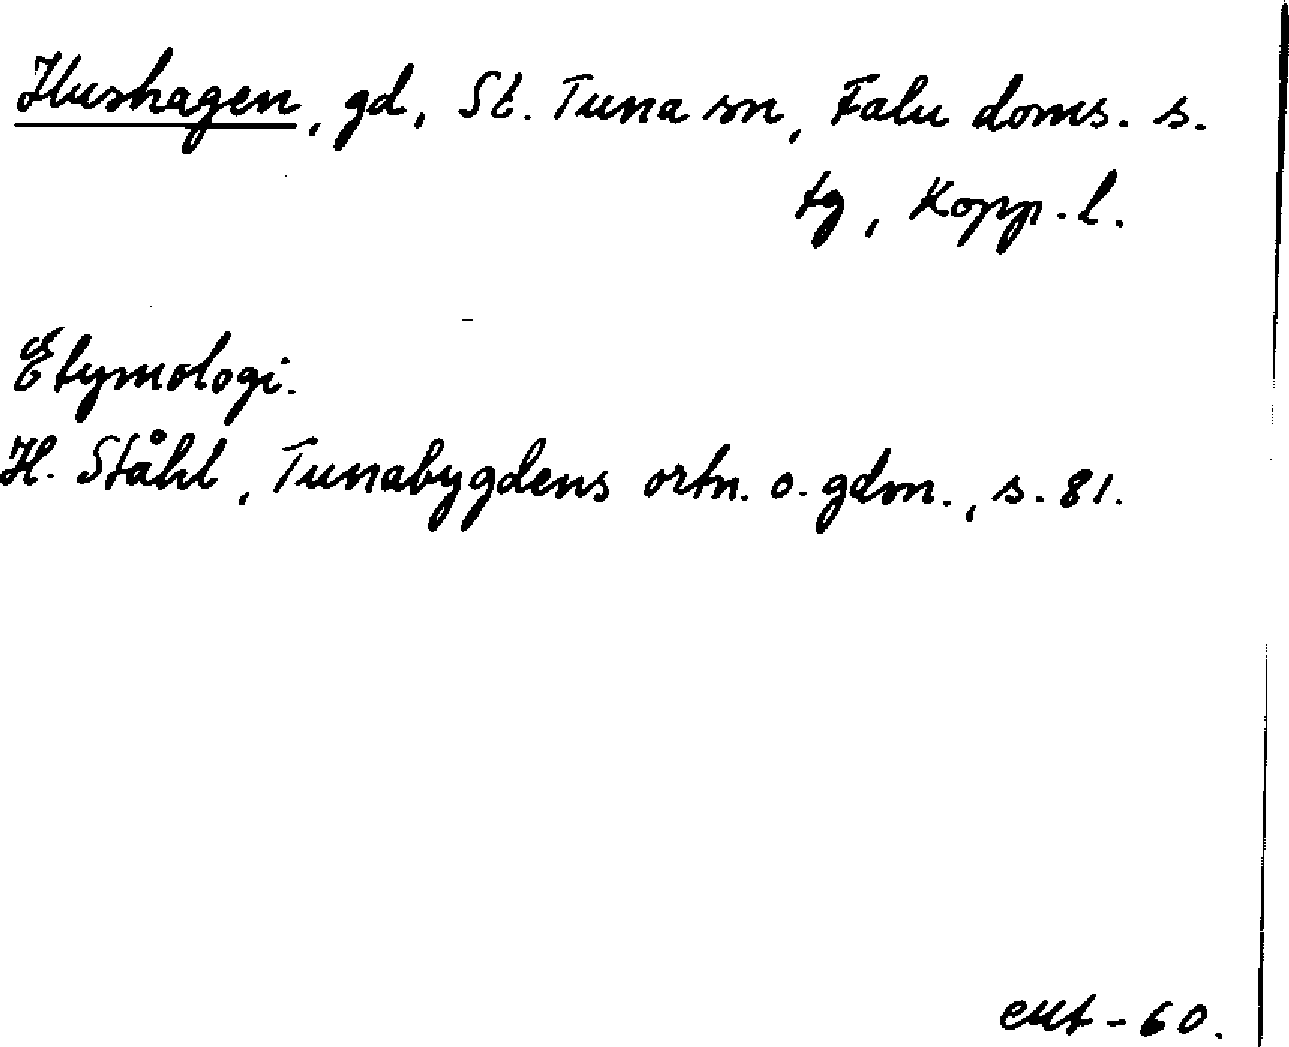 Hushagen, gd, St. Tuna sn, Falu doms. s.
tg, Kopp. l.
Etymologi.
H. Ståhl, Tunabygdens ortn. o. gdm., s. 81.
-60.